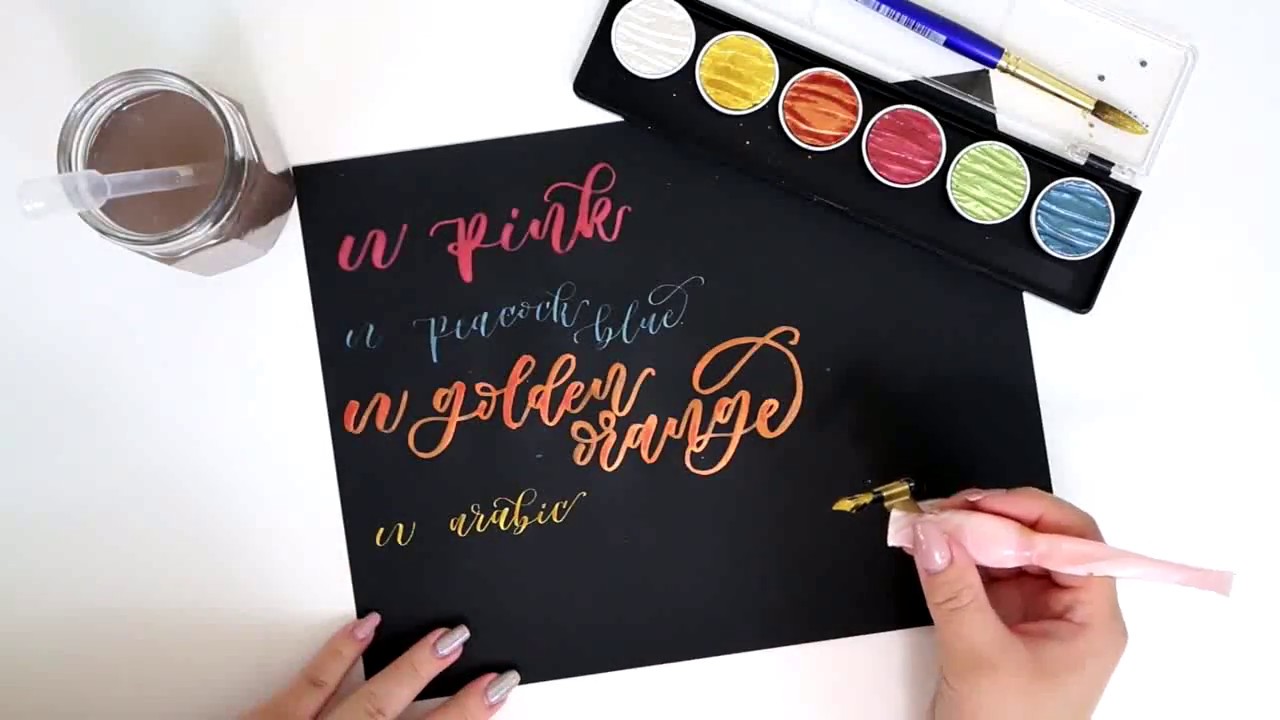 w pink
w peacock blue
w golden
orange
w arabic